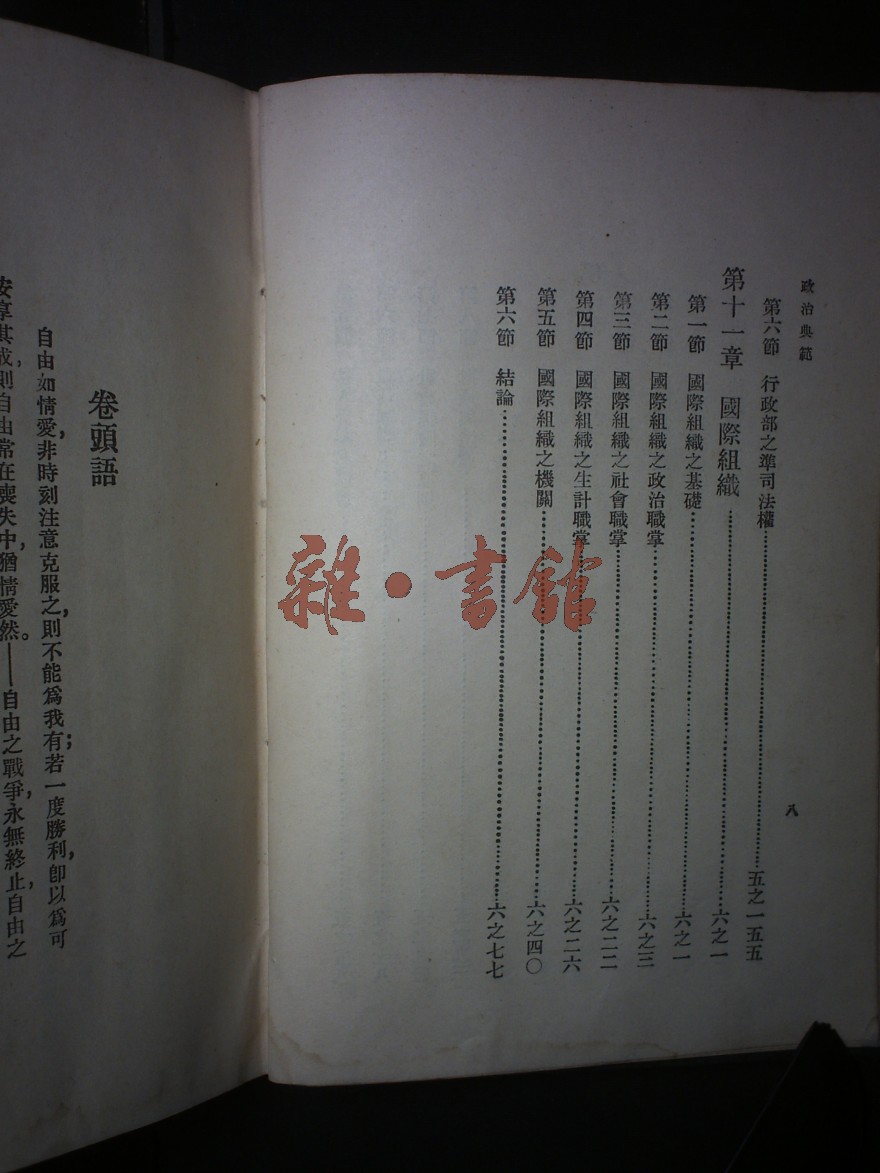 政治典範
第六節　行政部之準司法權……五之一五五
第十一章　國際組織……六之一
第一節　國際組織之基礎……六之一
第二節　國際組織之政治職掌……六之三
第三節　國際組織之社會職掌……六之二二
第四節　國際組織之生計職掌……六之二六
第五節　國際組織之機關……六之四〇
第六節　結論……六之七七
八
雜•書館
卷頭語
自由如情愛，非時刻注意克服之，則不能爲我有；若一度勝利，即以爲可
安享其成，則自由常在喪失中，猶情愛然。——自由之戰爭，永無終止，自由之